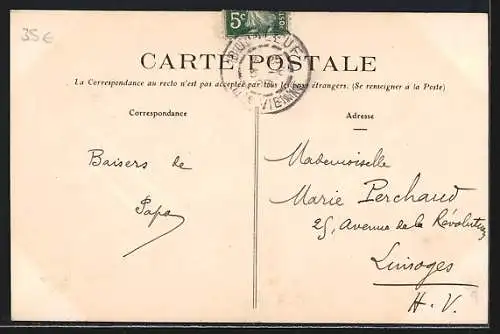 35€
5c
POSTES
CARTE POSTALE
La Correspondance au recto n'est pas acceptée par tous les pays étrangers. (Se renseigner à la Poste)
Correspondance
Adresse
Baisers de
Papa
Mademoiselle
Marie Perchaud
25, Avenue de la Révolution
Limoges
H. V.